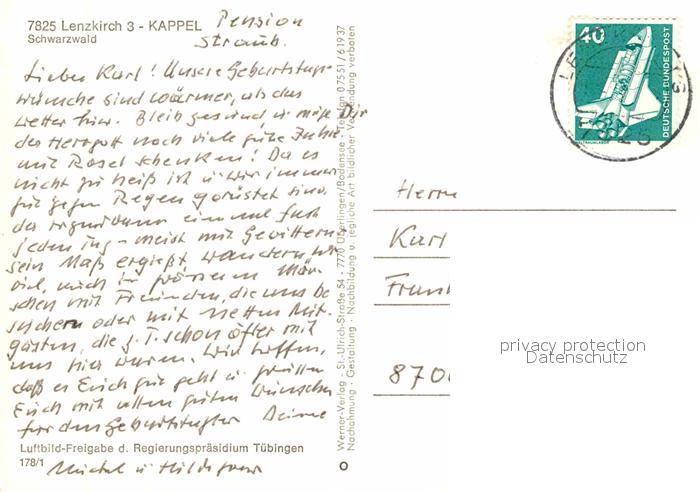 7825 Lenzkirch 3 - KAPPEL
Schwarzwald
Pension
Straub.
Lieber Karl! Unsere Geburtstags-
wünsche sind wärmer, als das
Wetter hier. Bleib gesund u. möge Dir
der Herrgott noch viele gute Jahre
mit Rosel schenken! Da es
nicht zu heiß ist u. wir immer
gut gegen Regen gerüstet sind,
der irgendwann einmal fast
jeden Tag - meist mit Gewittern,
sein Maß ergießt, wandern wir
viel, auch in grösseren Mär-
schen mit Freunden, die uns be
suchern oder mit netten Mit-
gästen, die z. T. schon öfter mit
uns hier waren. Wir hoffen,
daß es Euch gut geht u. grüßen
Euch mit allen guten Wünschen
für den Geburtstagter Deine
Michel u Hildegard
Luftbild-Freigabe d. Regierungspräsidium Tübingen
178/1
Werner-Verlag - St.-Ulrich-Straße 54 - 7770 Überlingen/Bodensee - Telefon 07551/61937
Nachahmung - Gestaltung - Nachbildung u. jegliche Art bildlicher Verwendung verboten
40
DEUTSCHE BUNDESPOST
WELTRAUMLABOR
Herrn
Karl
Frank
870
privacy protection
Datenschutz